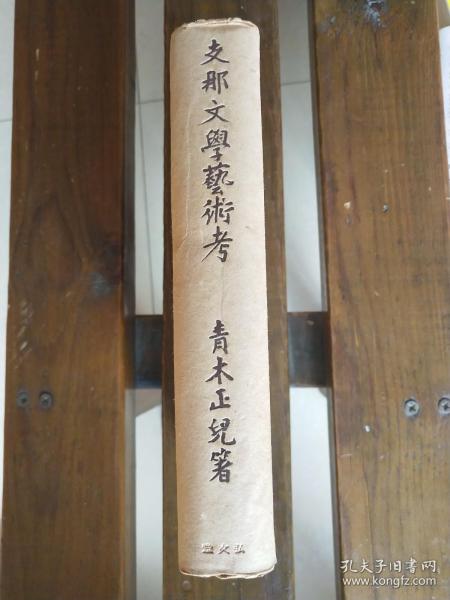 支那文學藝術考
青木正兒著
弘文堂
孔夫子旧书网
www.kongfz.com